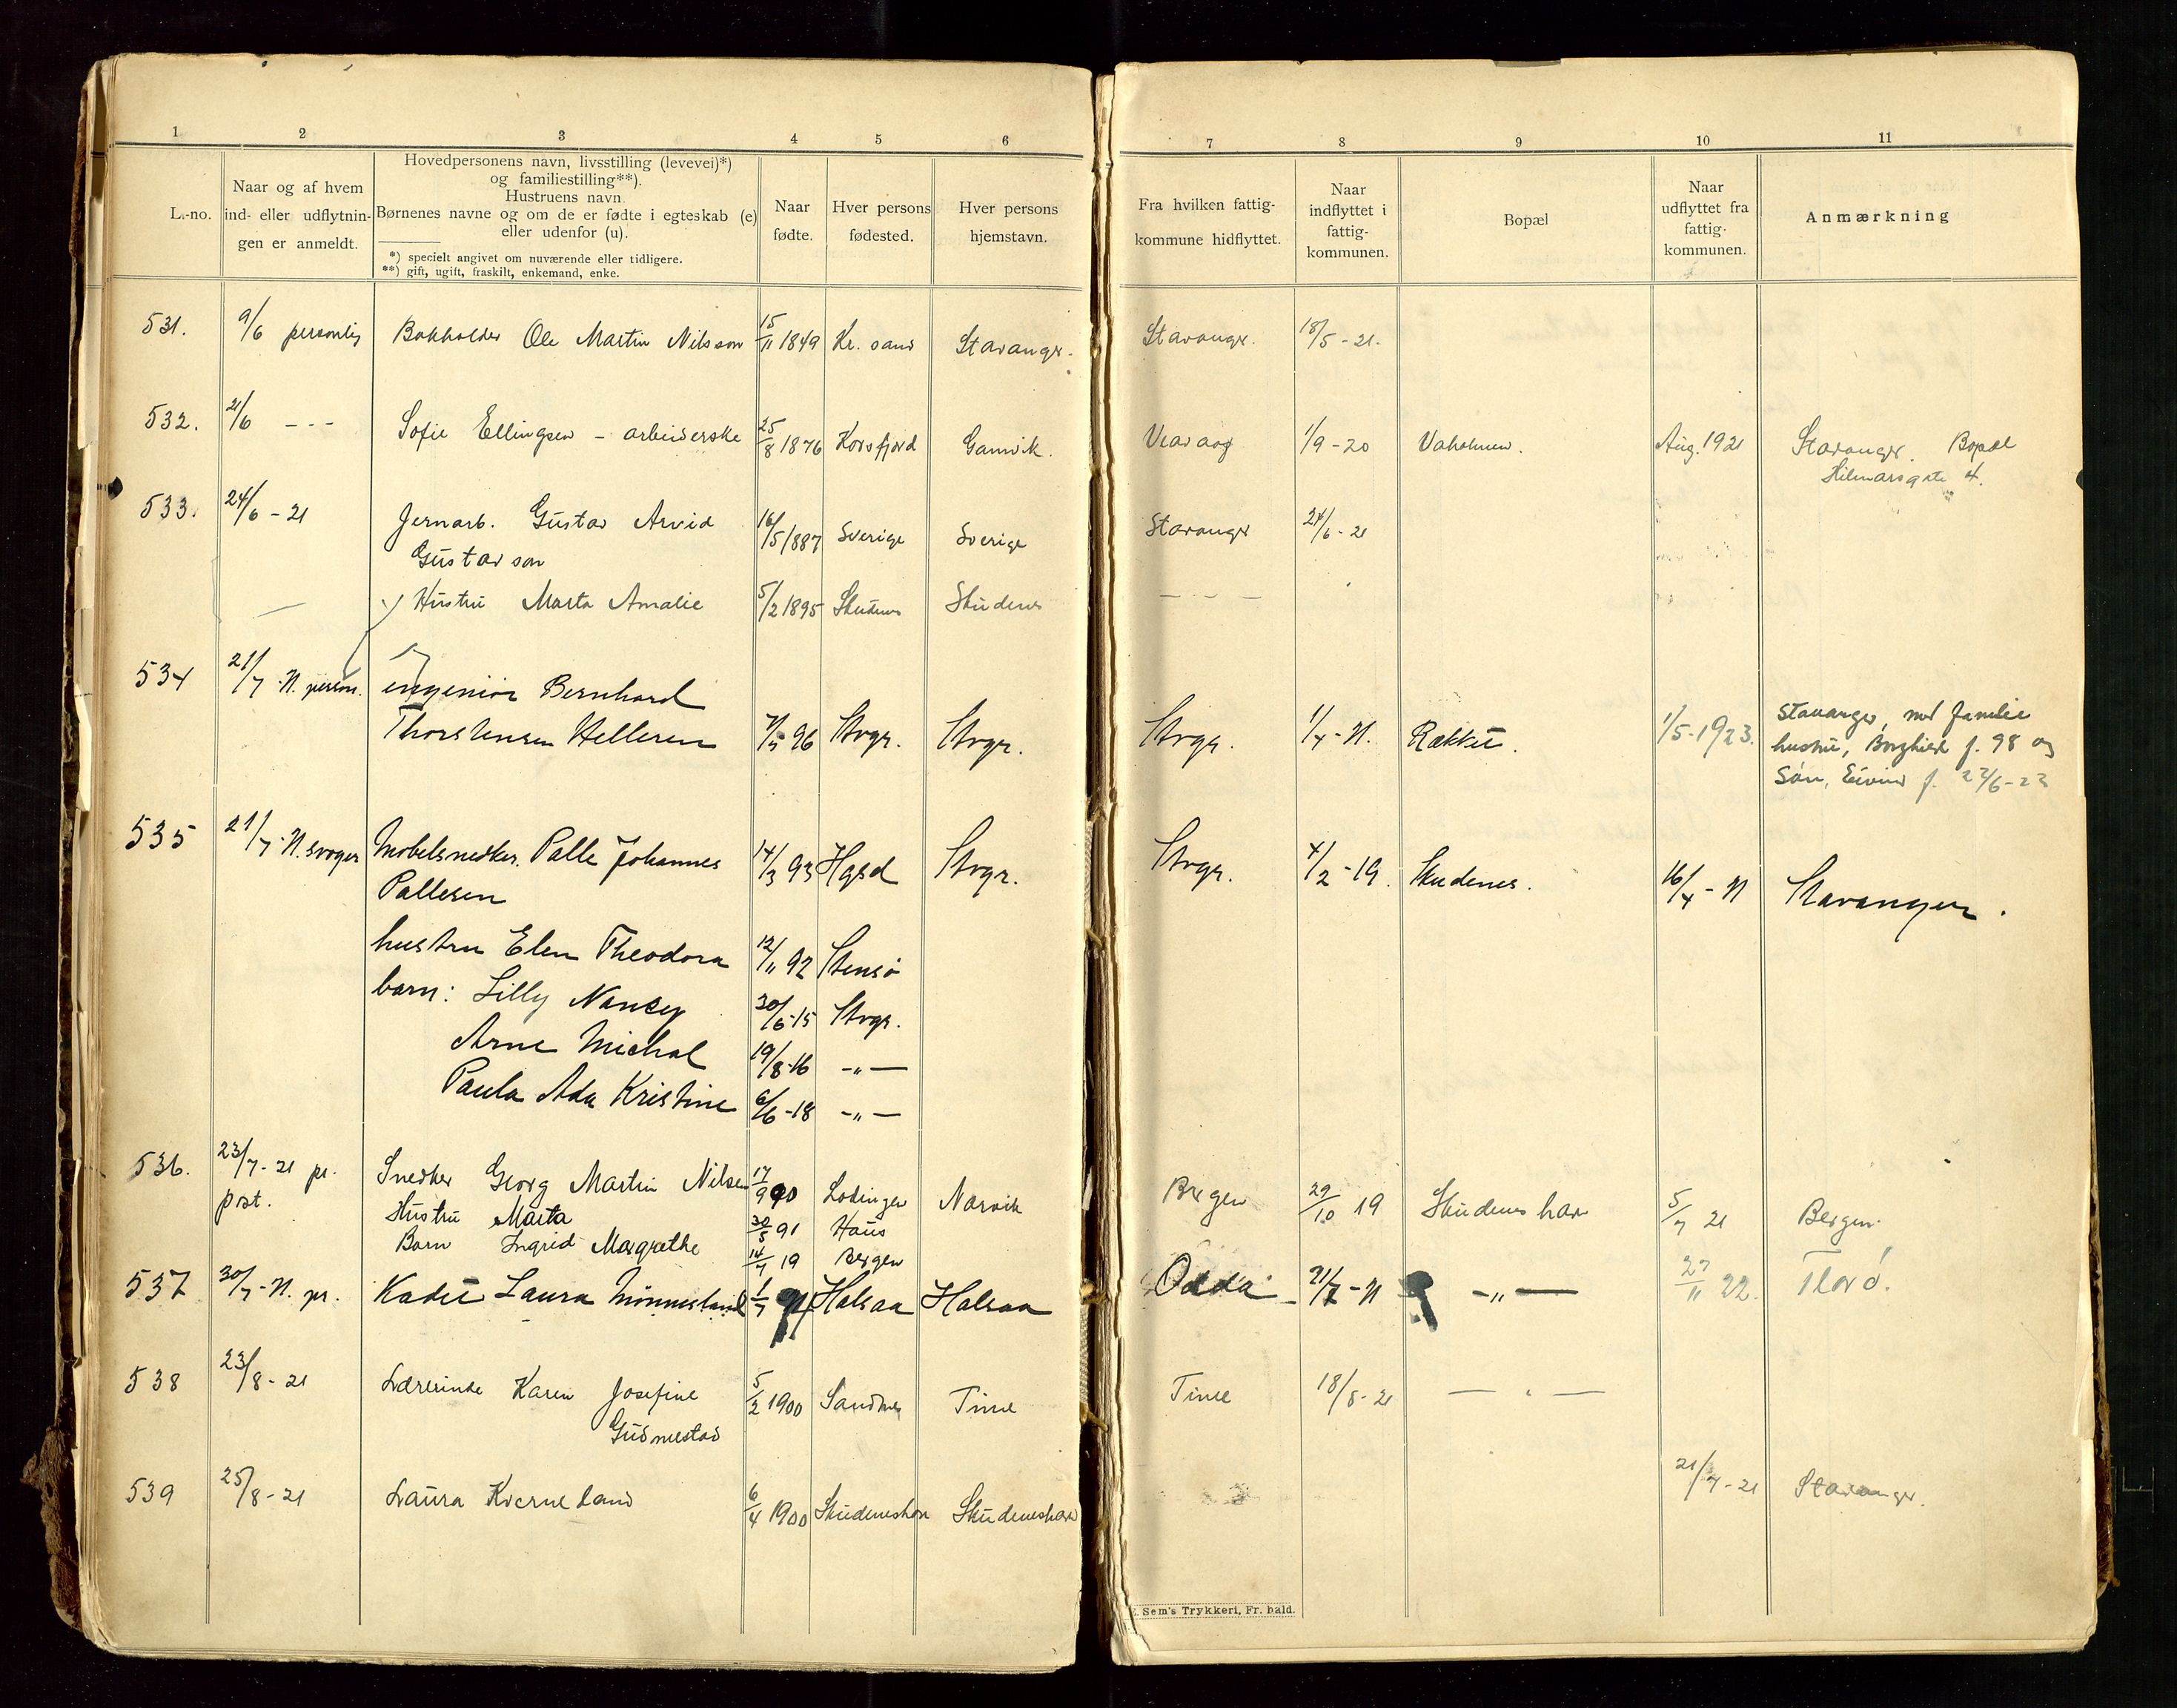 1 2 3 4 5 6 7 8 9 10 11
L.-no.
Naar og af hvem
ind- eller udflytnin-
gen er anmeldt.
Hovedpersonens navn, livsstilling (levevei)*)
og familiestilling**).
Hustruens navn.
Børnenes navne og om de er fødte i egteskab (e)
eller udenfor (u).
*) specielt angivet om nuværende eller tidligere.
**) gift, ugift, fraskilt, enkemand, enke.
Naar
fødte.
Hver persons
fødested.
Hver persons
hjemstavn.
Fra hvilken fattig-
kommune hidflyttet.
Naar
indflyttet i
fattig-
kommunen.
Bopæl
Naar
udflyttet fra
fattig-
kommunen.
Anmærkning
531. 9/6 personlig Bokholder Ole Martin Nilsson 15/11 1849 Kr. sand Stavangr. Stavangr. 18/5-21.
532. 21/6 - - - Sofie Ellingsen - arbeiderske 25/8 1876 Korsfjord Gamvik. 1/9-20 Aug. 1921 Stavangr. Bopæl
Hilmarsgate 4.
533. 24/6-21 Jernarb. Gustav Arvid 16/5 1887 Sverige Sverige Stavangr 24/6-21
Gustavson
Hustru Marta Amalie 5/2 1895 Skudenes Skudenes - - -
534 21/7-21. person. ingeniør Bernhard
Thorstensen Helleren 96 Stvgr. Stvgr. Stvgr. 1/4-21. Røkke. 1/5-1923. Stavanger, med familie
hustru, Borghild f. 98 og
Søn, Eivind f. 22/6-22
535 21/7-21. svoger Møbelsnedker Palle Johannes 14/3 93 Hgsd Stvgr. Stvgr. 4/2-19. Skudenes. 16/4-21 Stavanger.
Pallesen
hustru Elen Theodora 12/11 92 Stensø
barn: Lilly Nancy 30/6-15 Stvgr.
Arne Michal 19/8-16 -"-
Paula Ada Kristine 6/6-18 -"-
536. 23/7-21 pr. Snedker Georg Martin Nilsen 17/9 90 Lødingen Narvik Bergen 29/10 19 Skudeneshavn 5/7 21 Bergen.
post. Hustru Marta 91 Haus
Barn Ingrid Margrethe 19 Bergen
537 30/7-21. pr. Laura 1/7 Halsaa Halsaa Odda 21/7-21 -"- 27/11 22. Florø.
538 23/8-21 Lærerinde Karen Josefine 5/2 1900 Sandnes Time Time 18/8-21 - " -
Gudmestad
539 25/8-21 Laura Kverneland 6/4 1900 Skudeneshavn Skudeneshavn 21/7-21 Stavangr.
E. Sem's Trykkeri, Fr. hald.